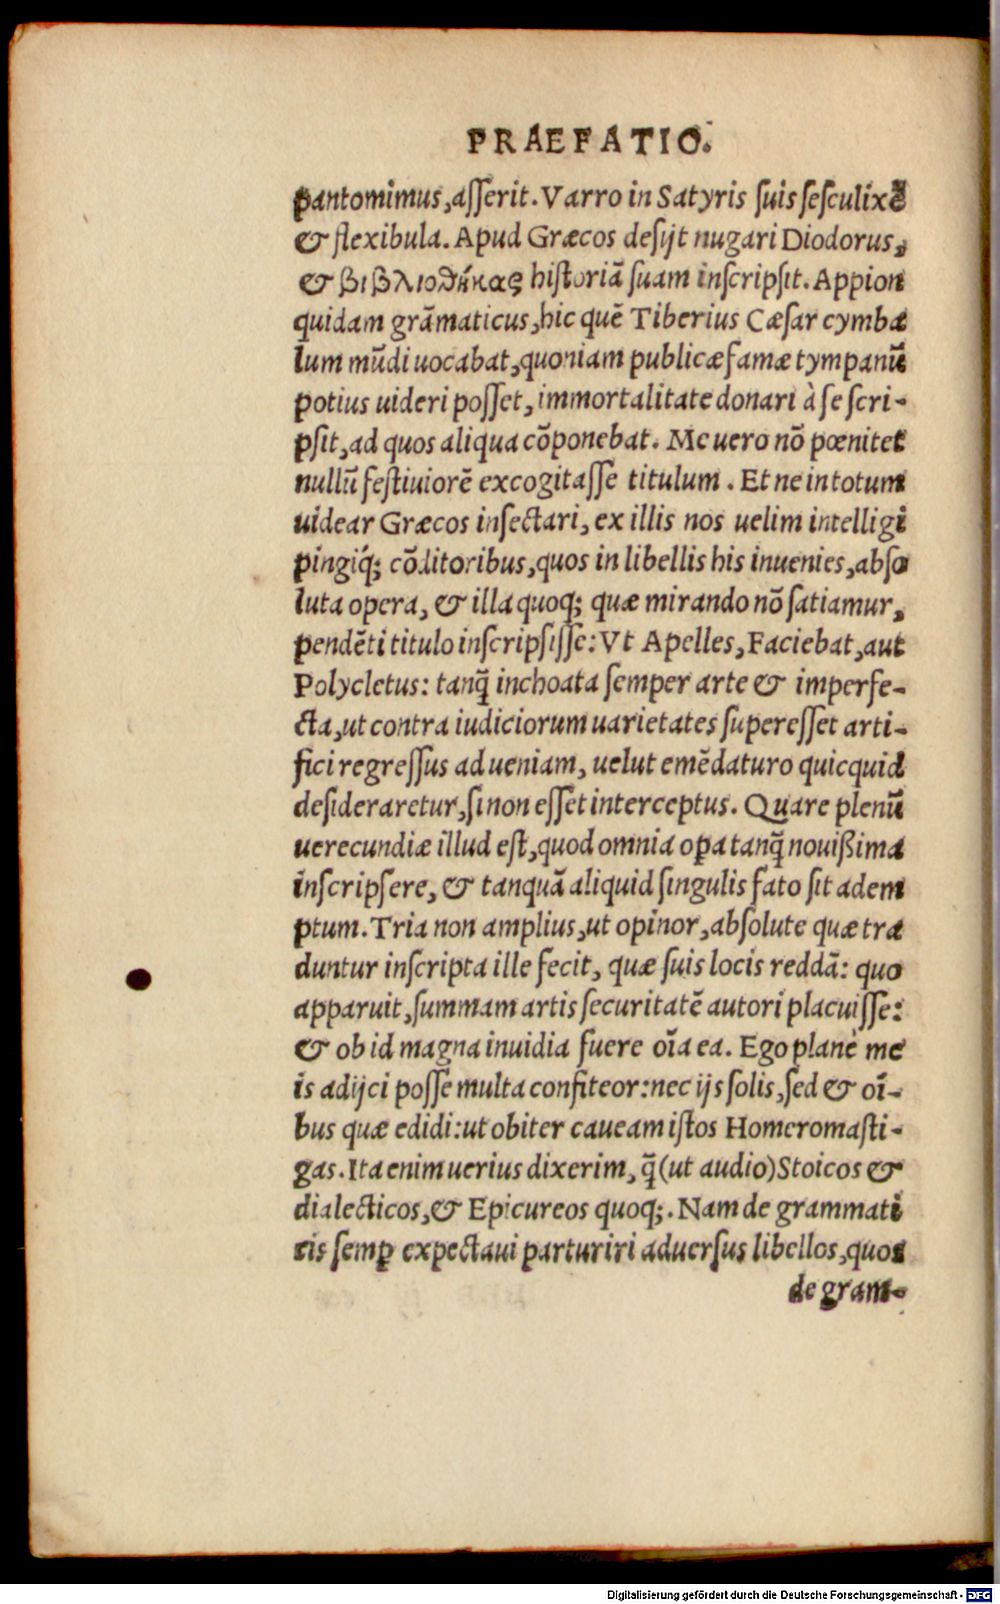 PRAEFATIO.
pantomimus, aſſerit. Varro in Satyris ſuis ſeſculixē
& flexibula. Apud Græcos deſijt nugari Diodorus,
& βιβλιοθήκας hiſtoriā ſuam inſcripſit. Appion
quidam grāmaticus, hic quē Tiberius Cæſar cymba
lum mūdi uocabat, quoniam publicæ famæ tympanū
potius uideri poſſet, immortalitate donari à ſe ſcri-
pſit, ad quos aliqua cōponebat. Me uero nō pœnitet
nullū feſtiuiorē excogitaſſe titulum. Et ne in totum
uidear Græcos inſectari, ex illis nos uelim intelligi
pingiq́; cōditoribus, quos in libellis his inuenies, abſo
luta opera, & illa quoq; quæ mirando nō ſatiamur,
pendēti titulo inſcripſiſſe: Vt Apelles, Faciebat, aut
Polycletus: tanq̃ inchoata ſemper arte & imperfe-
cta, ut contra iudiciorum uarietates ſupereſſet arti-
fici regreſſus ad ueniam, uelut emēdaturo quicquid
deſideraretur, ſi non eſſet interceptus. Quare plenū
uerecundiæ illud eſt, quod omnia oꝑa tanq̃ nouißima
inſcripſere, & tanquā aliquid ſingulis fato ſit adem
ptum. Tria non amplius, ut opinor, abſolute quæ tra
duntur inſcripta ille fecit, quæ ſuis locis reddā: quo
apparuit, ſummam artis ſecuritatē autori placuiſſe:
& ob id magna inuidia fuere oīa ea. Ego planè me
is adijci poſſe multa confiteor: nec ijs ſolis, ſed & oī-
bus quæ edidi: ut obiter caueam iſtos Homeromaſti-
gas. Ita enim uerius dixerim, q̃ (ut audio) Stoicos &
dialecticos, & Epicureos quoq;. Nam de grammati
cis ſemꝑ expectaui parturiri aduerſus libellos, quos
de gram-
Digitalisierung gefördert durch die Deutsche Forschungsgemeinschaft - DFG